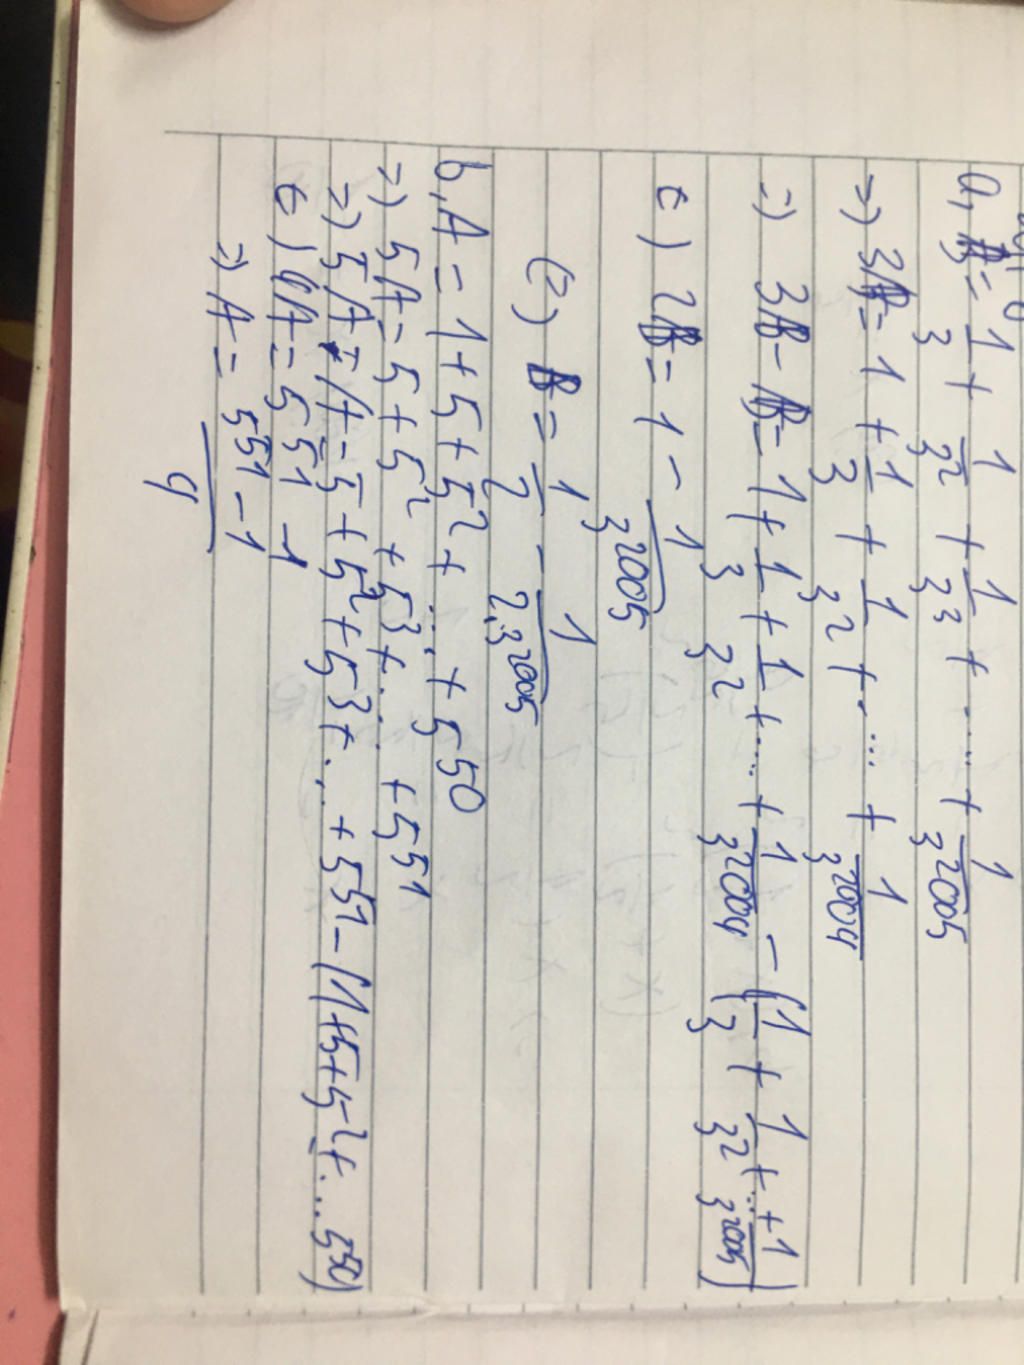 a, B = 1/3 + 1/3² + 1/3³ + .... + 1/3²⁰⁰⁵
=) 3B = 1 + 1/3 + 1/3² + .... + 1/3²⁰⁰⁴
=) 3B - B = 1 + 1/3 + 1/3² + .... + 1/3²⁰⁰⁴ - (1/3 + 1/3² + ... + 1/3²⁰⁰⁵)
(=) 2B = 1 - 1/3²⁰⁰⁵
(=) B = 1/2 - 1/2.3²⁰⁰⁵
b, A = 1 + 5 + 5² + ... + 5⁵⁰
=) 5A = 5 + 5² + 5³ + ... + 5⁵¹
=) 5A - A = 5 + 5² + 5³ + ... + 5⁵¹ - (1 + 5 + 5² + ... 5⁵⁰)
(=) 4A = 5⁵¹ - 1
=) A = 5⁵¹ - 1 / 4